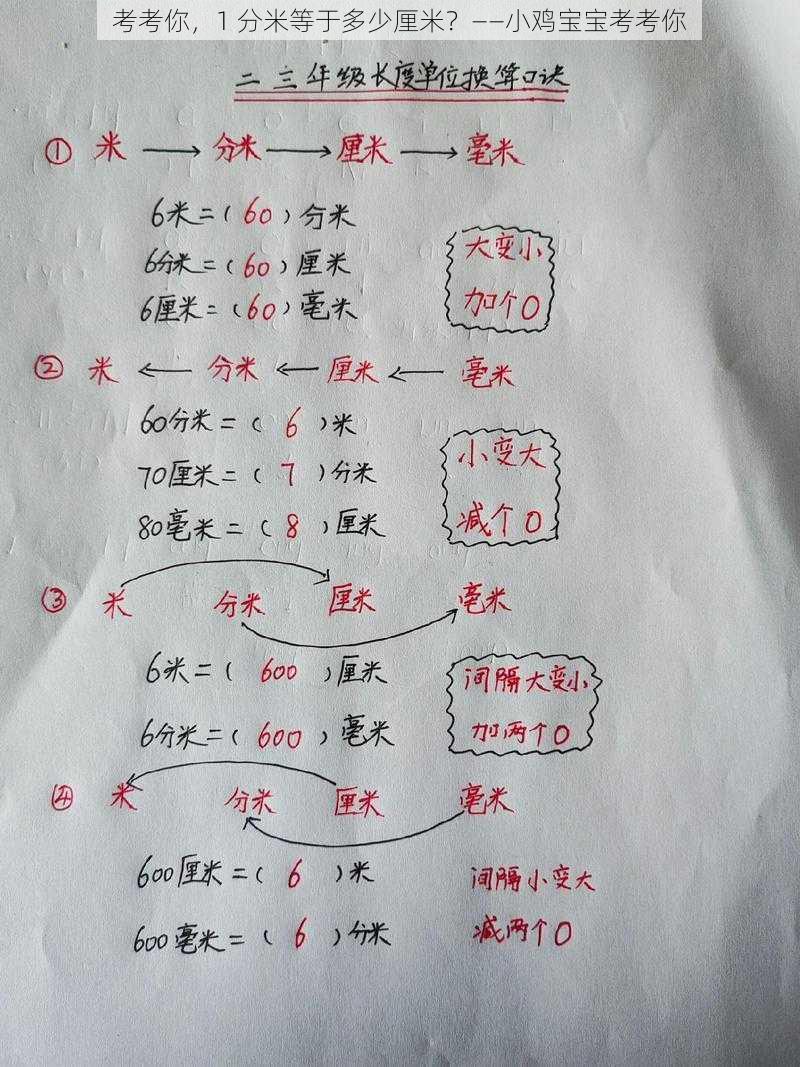 考考你，1 分米等于多少厘米？——小鸡宝宝考考你
二三年级长度单位换算口诀
① 米 → 分米 → 厘米 → 毫米
6米=(60)分米
6分米=(60)厘米
6厘米=(60)毫米
大变小
加个0
② 米 ← 分米 ← 厘米 ← 毫米
60分米=(6)米
70厘米=(7)分米
80毫米=(8)厘米
小变大
减个0
③ 米 分米 厘米 毫米
6米=(600)厘米
6分米=(600)毫米
间隔大变小
加两个0
④ 米 分米 厘米 毫米
600厘米=(6)米
600毫米=(6)分米
间隔小变大
减两个0